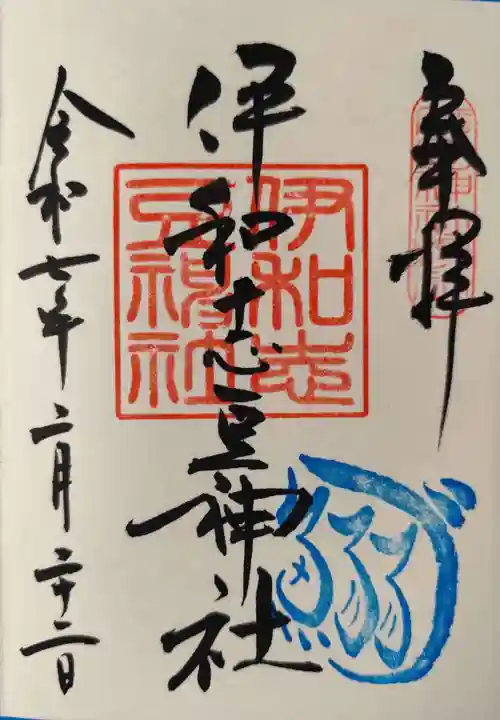 奉拝
伊和志豆神社
伊和志
豆神社
令和七年二月二十二日